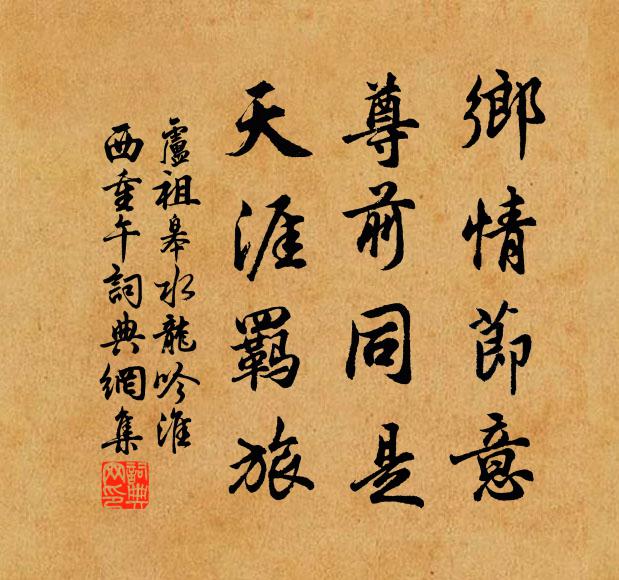 鄉情節意
尊前同是
天涯羈旅
盧祖皋水龍吟淮
西重午詞典網集
詞典網印